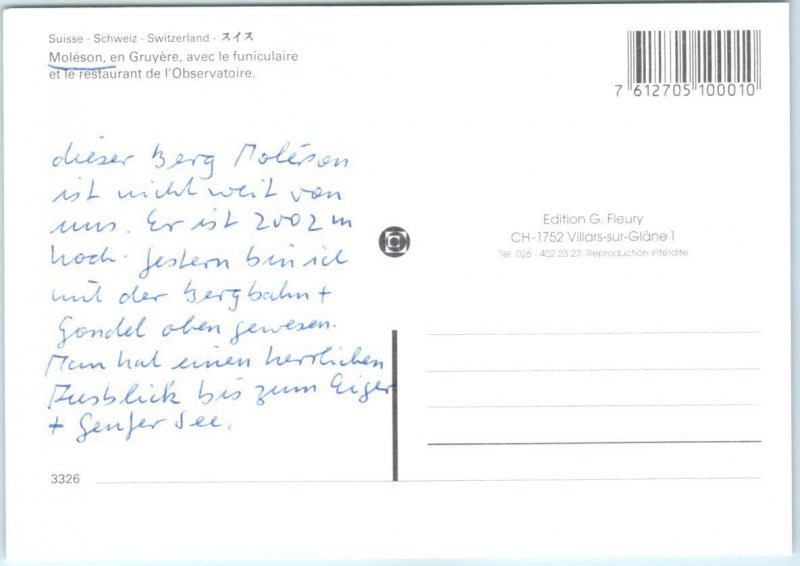 Suisse - Schweiz - Switzerland - スイス
Moléson, en Gruyère, avec le funiculaire
et le restaurant de l'Observatoire.
7 612705 100010
dieser Berg Moléson
ist nicht weit von
uns. Er ist 2002 m
hoch. Gestern bin ich
mit der Bergbahn +
Gondel oben gewesen.
Man hat einen herrlichen
Ausblick bis zum Eiger
+ Genfer See.
Edition G. Fleury
CH-1752 Villars-sur-Glâne 1
Tel. 026 - 402 23 23 Reproduction interdite
3326